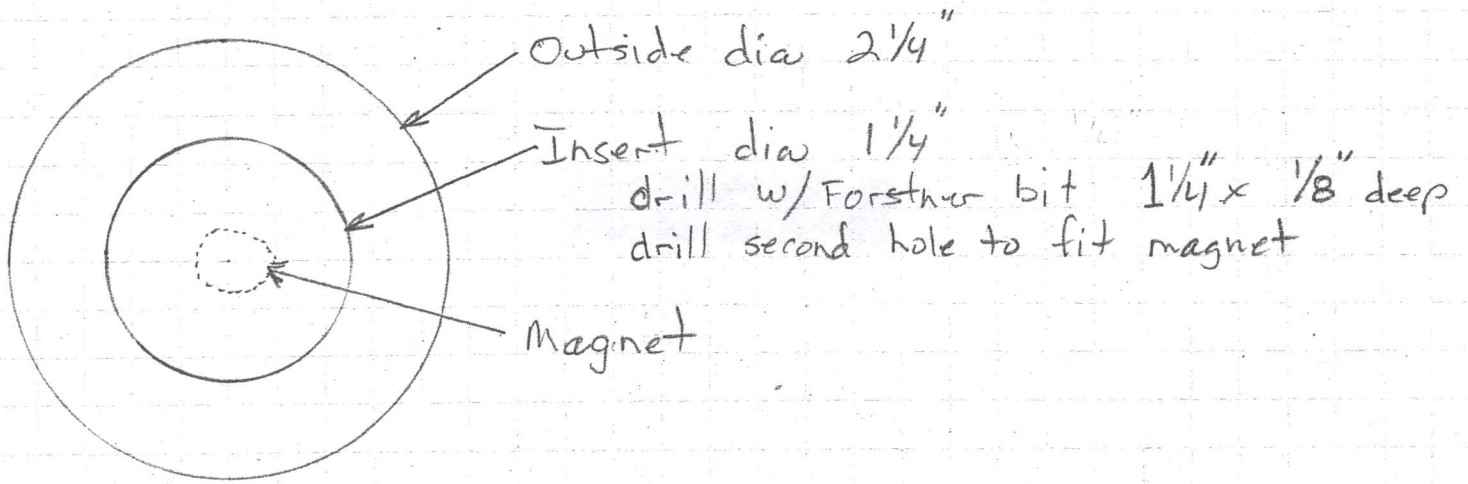 Outside dia 2 1/4"
Insert dia 1 1/4"
drill w/ Forstner bit 1 1/4" x 1/8" deep
drill second hole to fit magnet
Magnet